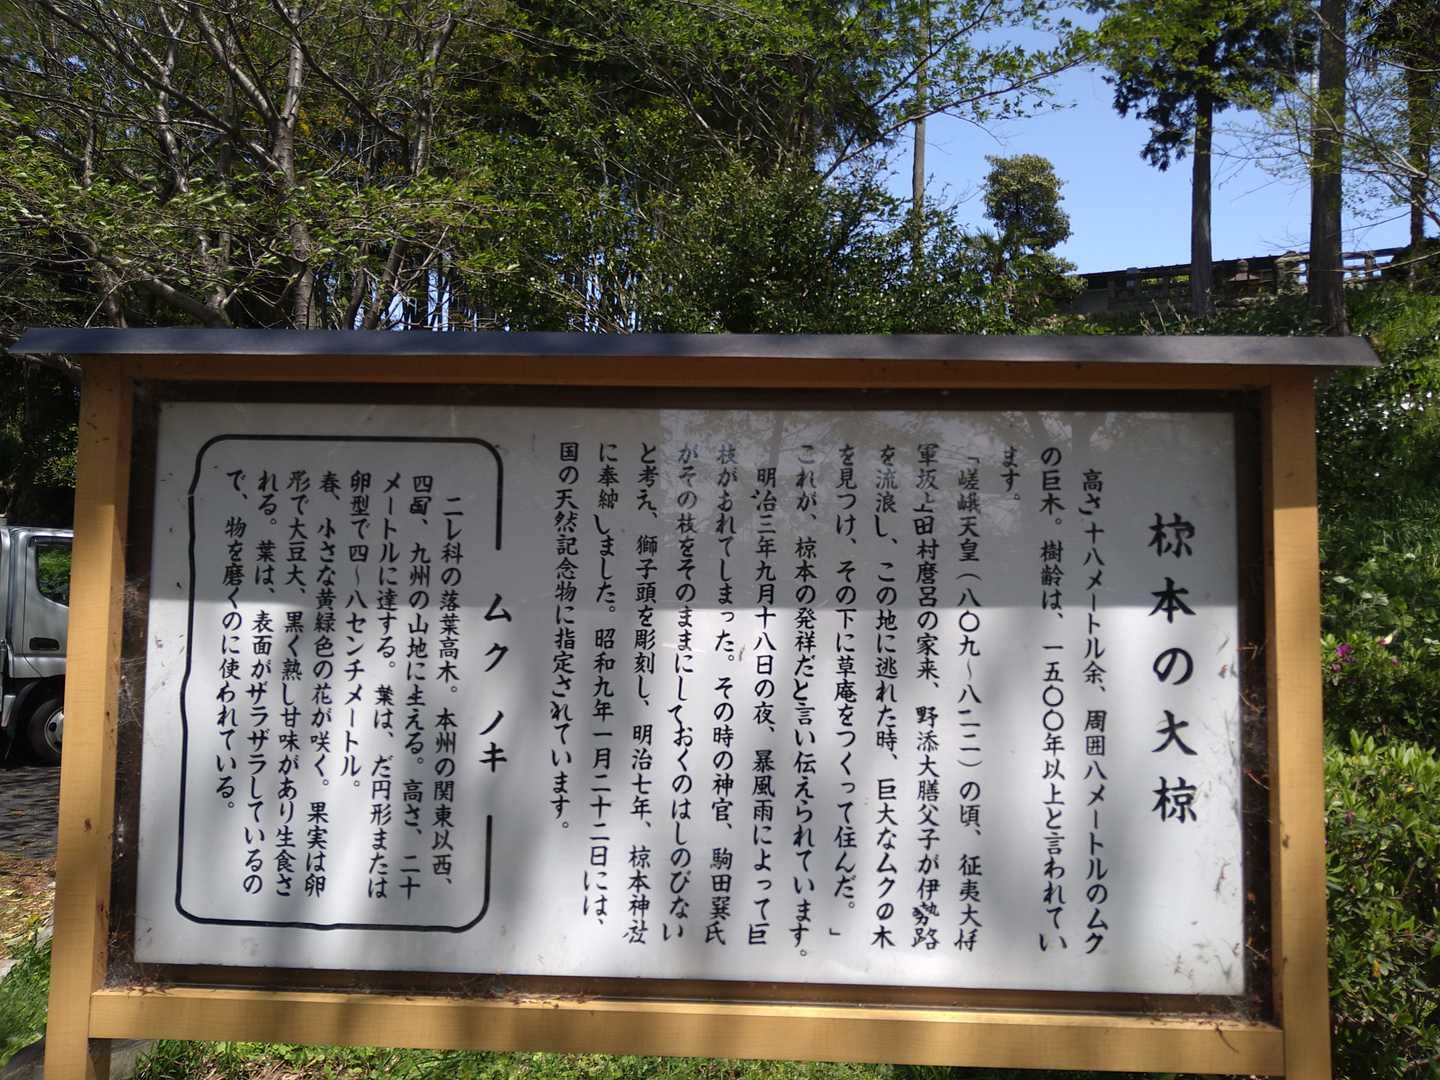 椋本の大椋
高さ十八メートル余、周囲八メートルのムク
の巨木。樹齢は、一五〇〇年以上と言われてい
ます。
「嵯峨天皇（八〇九〜八二二）の頃、征夷大将
軍坂上田村麿呂の家来、野添大膳父子が伊勢路
を流浪し、この地に逃れた時、巨大なムクの木
を見つけ、その下に草庵をつくって住んだ。」
これが、椋本の発祥だと言い伝えられています。
明治三年九月十八日の夜、暴風雨によって巨
枝がおれてしまった。その時の神官、駒田巽氏
がその枝をそのままにしておくのはしのびない
と考え、獅子頭を彫刻し、明治七年、椋本神社
に奉納しました。昭和九年一月二十二日には、
国の天然記念物に指定されています。
ムクノキ
ニレ科の落葉高木。本州の関東以西、
四国、九州の山地に生える。高さ、二十
メートルに達する。葉は、だ円形または
卵型で四〜八センチメートル。
春、小さな黄緑色の花が咲く。果実は卵
形で大豆大、黒く熟し甘味があり生食さ
れる。葉は、表面がザラザラしているの
で、物を磨くのに使われている。